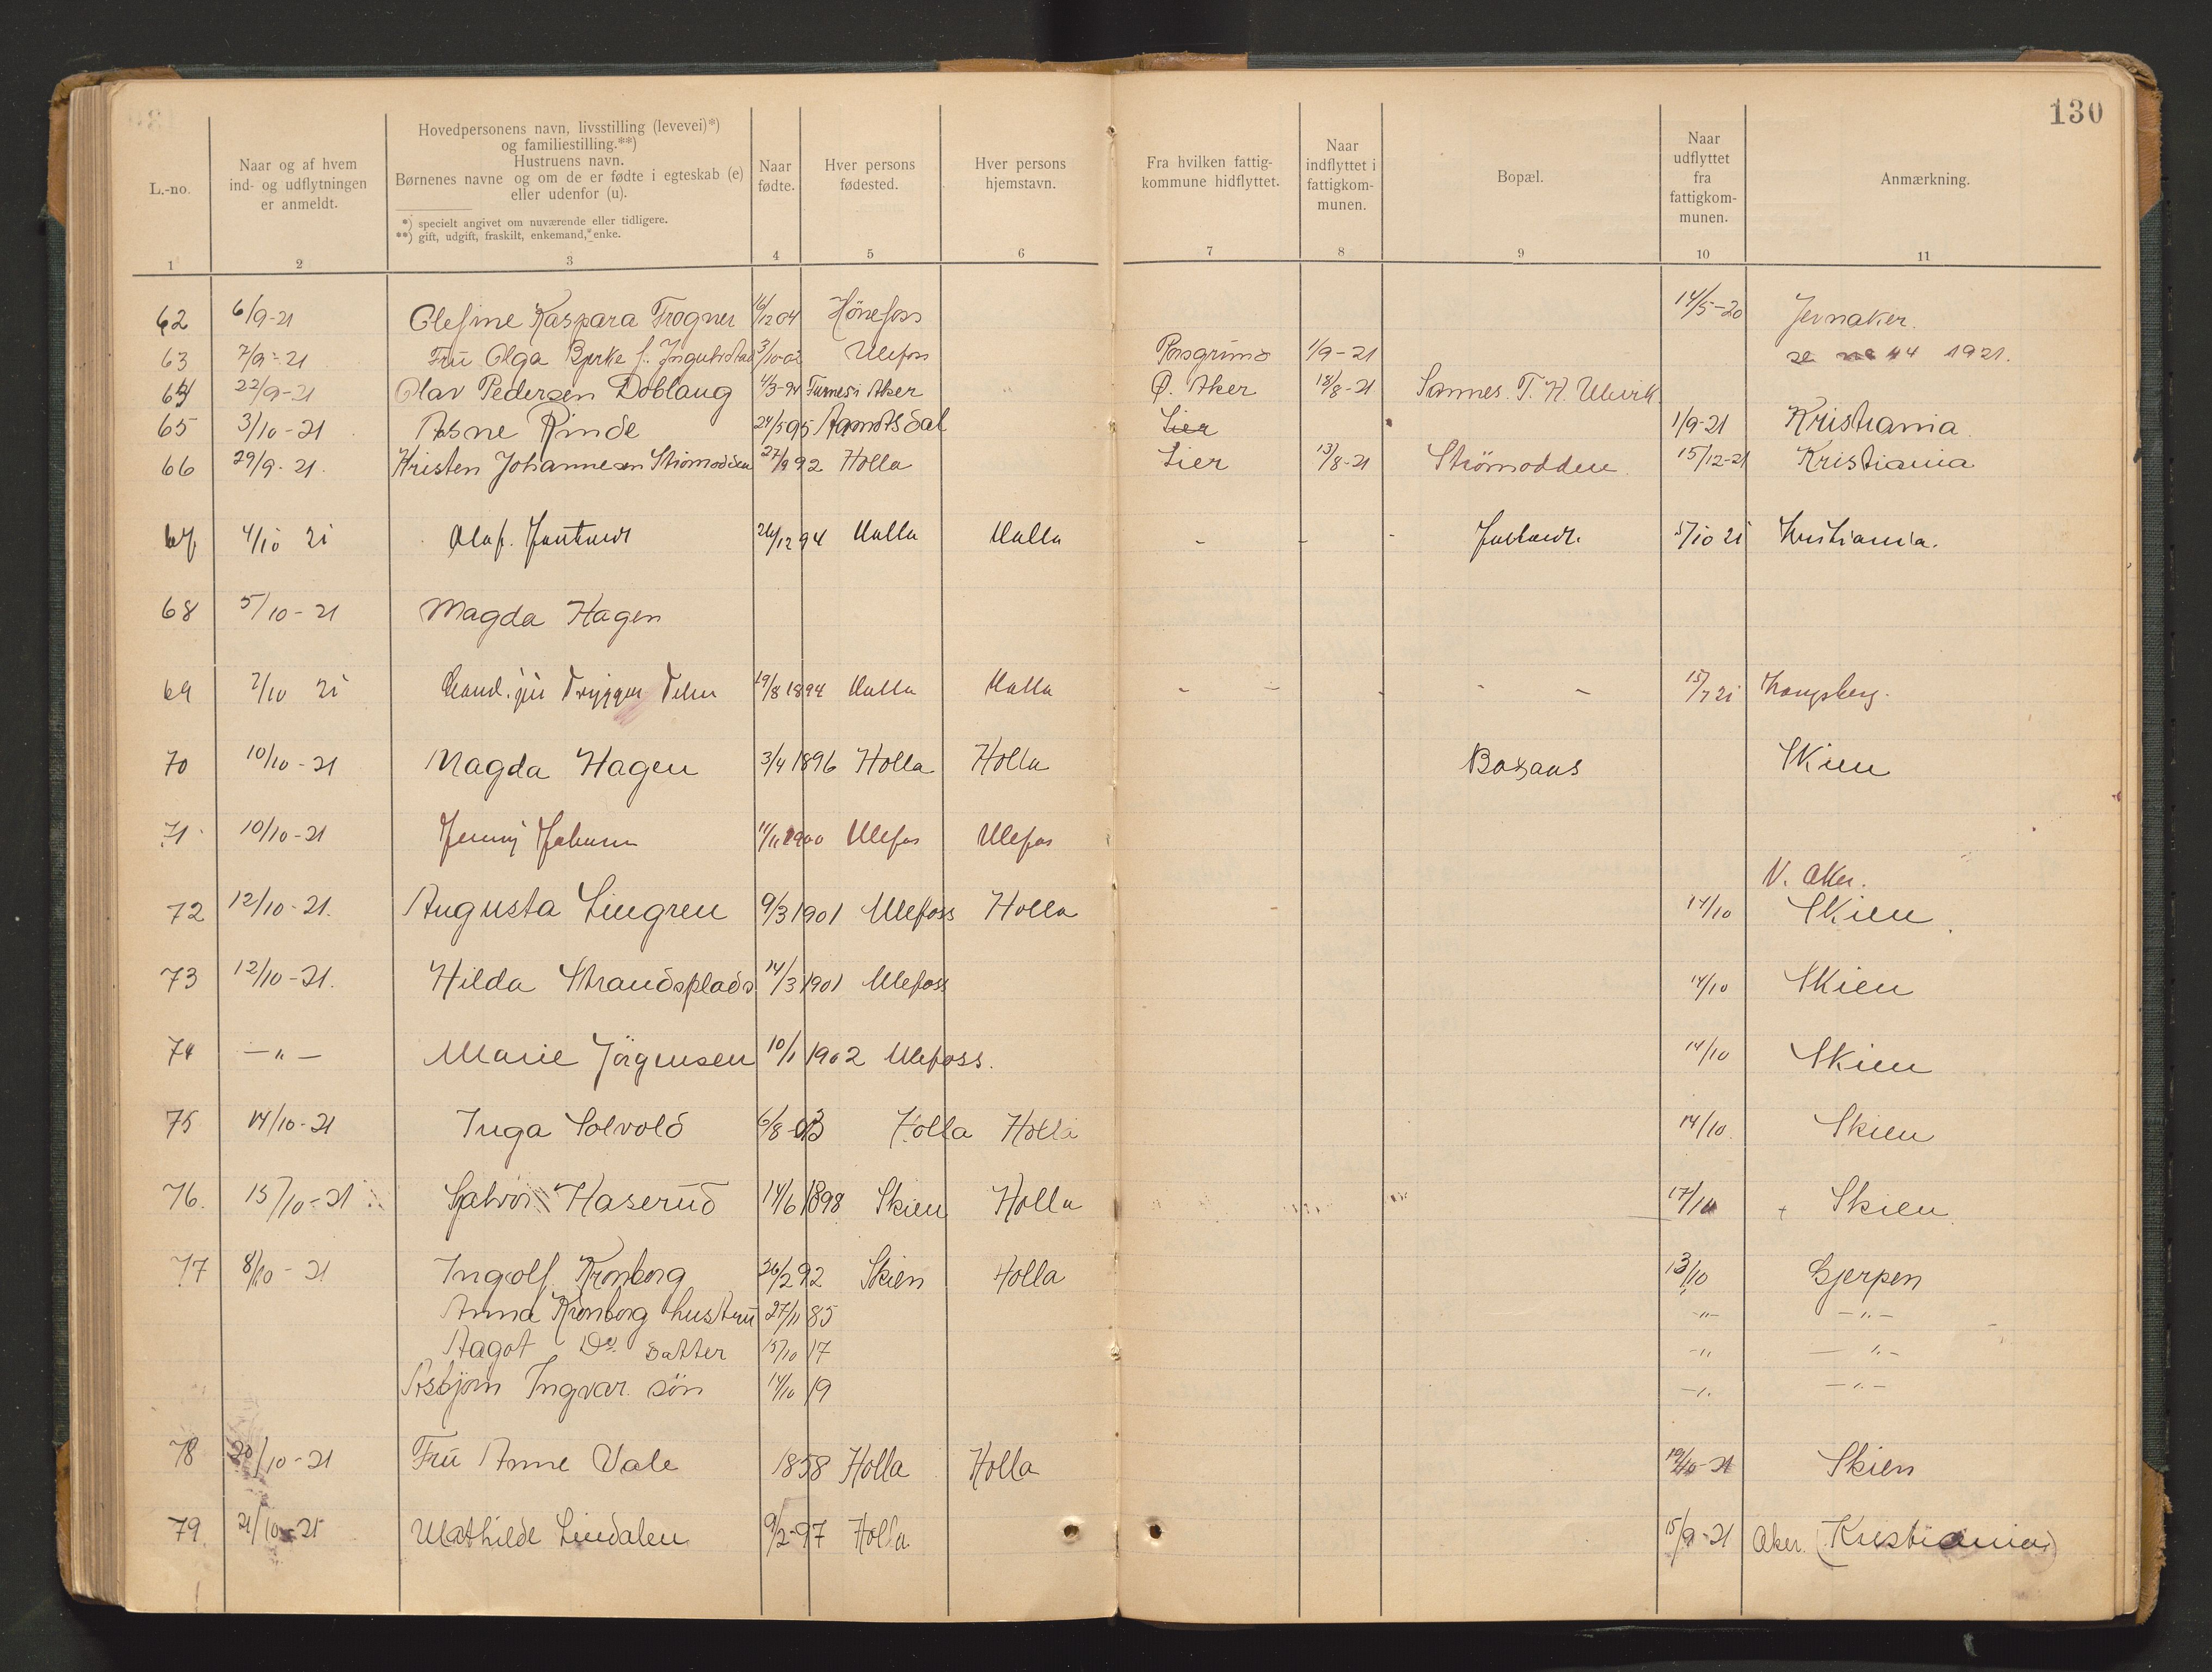 130
L.-no.
Naar og af hvem
ind- og udflytningen
er anmeldt.
Hovedpersonens navn, livsstilling (levevei)*)
og familiestilling.**)
Hustruens navn.
Børnenes navne og om de er fødte i egteskab (e)
eller udenfor (u).
*) specielt angivet om nuværende eller tidligere.
**) gift, udgift, fraskilt, enkemand, enke.
Naar
fødte.
Hver persons
fødested.
Hver persons
hjemstavn.
Fra hvilken fattig-
kommune hidflyttet.
Naar
indflyttet i
fattigkom-
munen.
Bopæl.
Naar
udflyttet
fra
fattigkom-
munen.
Anmærkning.
1 2 3 4 5 6 7 8 9 10 11
62 6/9-21 Olefine Kaspara Trogner 16/12 04 Hönefoss 14/5-20 Jevnaker.
63 7/9-21 Fru Olga Bjerke f. 3/10-02 Ulefoss Porsgrund 1/9-21 se no 44 1921.
64 22/9-21 Olav Pedersen Doblaug 4/3-94 Furnes i Aker Ø. Aker 18/8-21 Sannes. T. H. Ulvik.
65 3/10-21 Asne Rinde 24/5 95 Aamotsdal Lier 1/9-21 Kristiania.
66 29/9-21. Kristen Johannesen Strömodden 27/9 92 Holla Lier 13/8-21 Strömodden 15/12-21 Kristiania
67 4/10 21 Olaf. 26/12 94 Holla Holla - - - 5/10 21 Kristiania.
68 5/10-21 Magda Hagen
69 7/10 21 Cand. jur Trygger 19/8 1894 Holla Holla - - - - - 15/7 21 Kongsberg.
70 10/10-21 Magda Hagen 3/4 1896 Holla Holla Baxaas Skien
71 10/10-21 Jenny 11/11 1900 Ulefos Ulefos
V. Aker.
72 12/10-21. Augusta Lingren 9/3 1901 Ulefoss Holla 14/10 Skien.
73 12/10-21. Hilda Strandsplads 14/3 1901 Ulefoss 14/10 Skien
74 —"— Marie Jörgensen 10/1 1902 Ulefoss. 14/10 Skien
75 14/10-21 Inga Solvold 6/8-03 Holla Holla 14/10 Skien
76. 15/10-21 Haserud 14/6 1898 Skien Holla 17/10 + Skien
77 8/10-21 Ingolf Kronborg 26/2 92 Skien Holla 13/10 Gjerpen
Anna Kronborg hustru 27/11 85 -"- -"-
Aagot Do. datter 15/10 17 -"- -"-
Asbjörn Ingvar. sön 14/10 19 -"- -"-
78 20/10-21 Fru Anne Vale 1858 Holla Holla 19/10-21 Skien
79. 21/10-21 Mathilde Lindalen 9/2-97 Holla 15/9-21 Aker. (Kristiania)